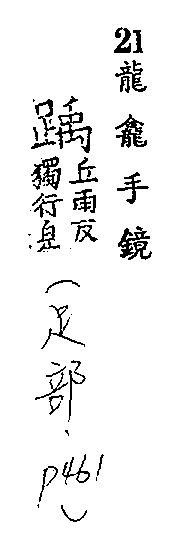 21 龍龕手鏡
踽
丘雨反
獨行皃
(足部. p461)